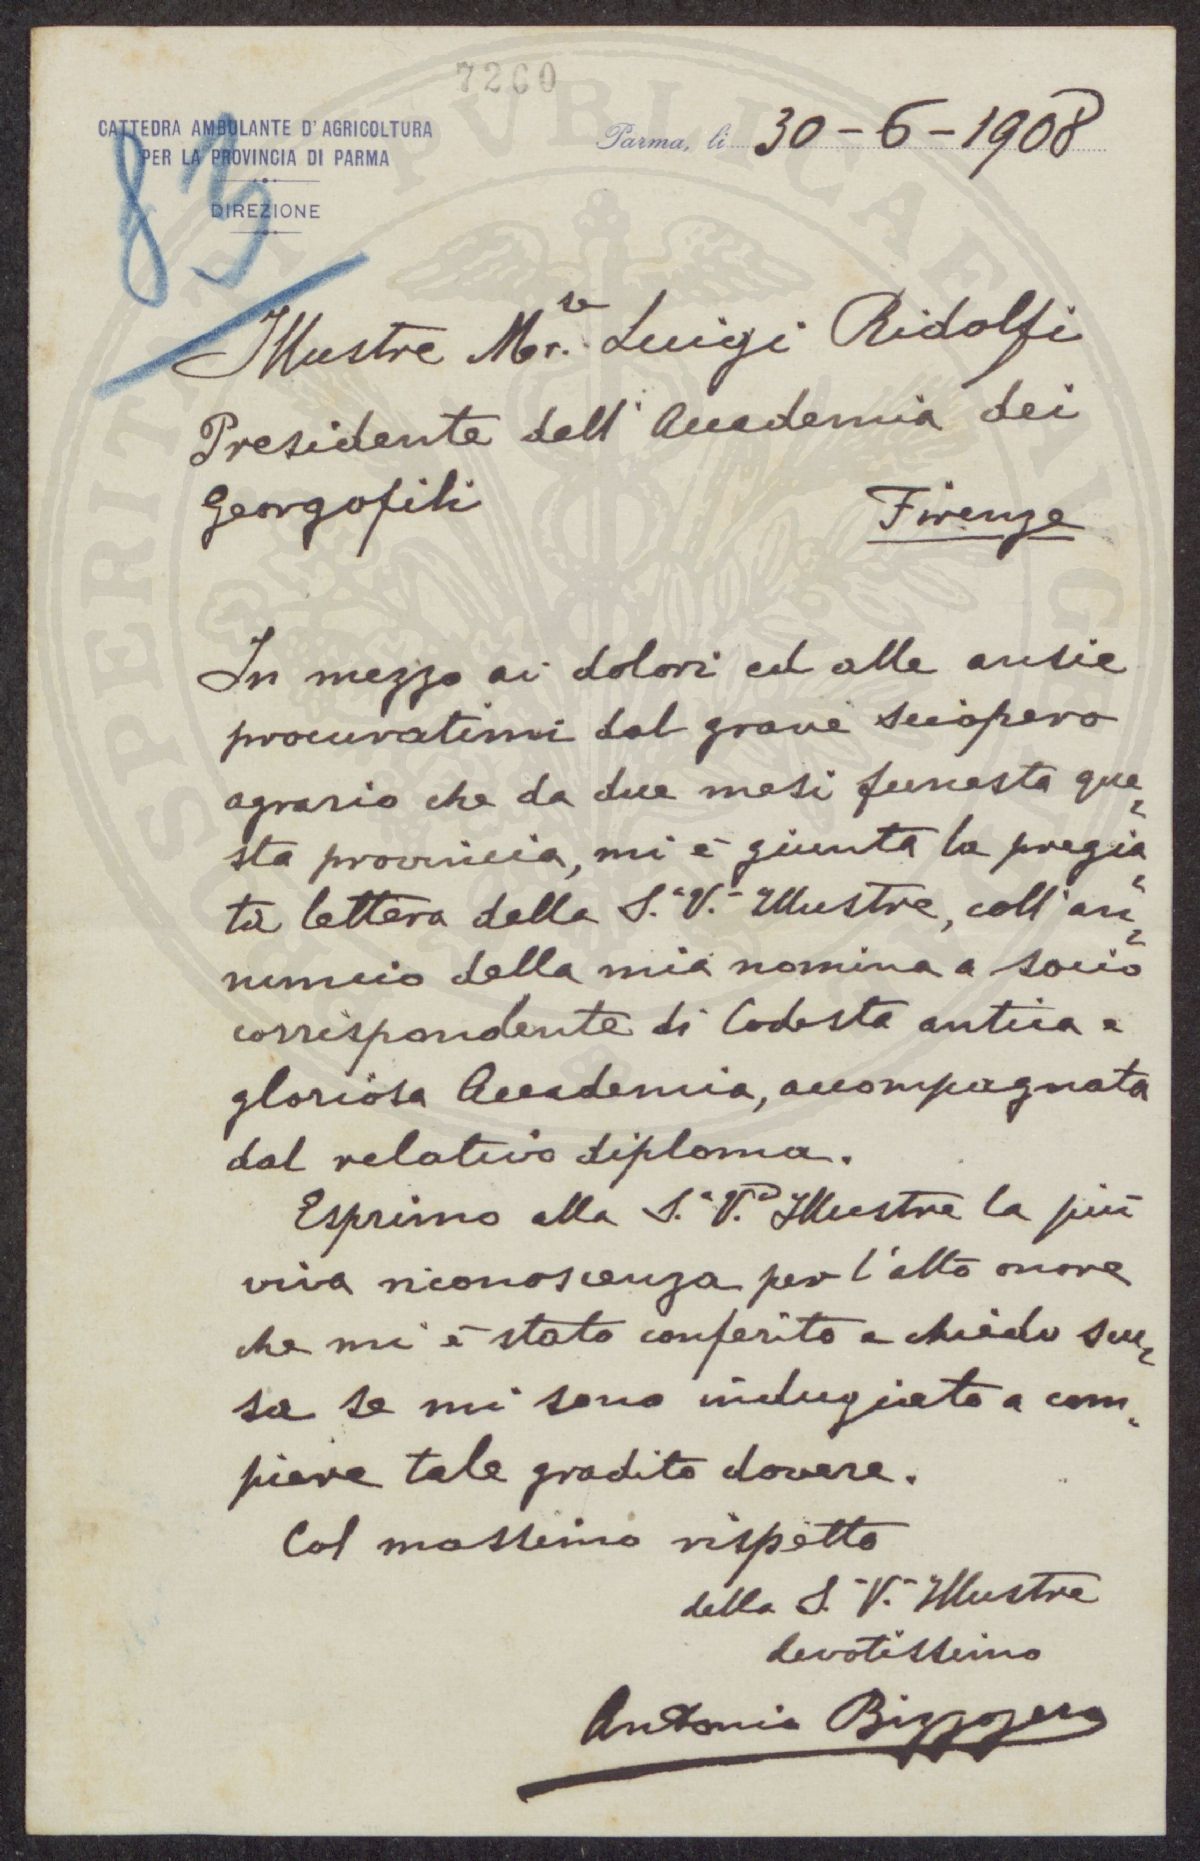 7260
CATTEDRA AMBULANTE D'AGRICOLTURA
PER LA PROVINCIA DI PARMA
DIREZIONE
83
Parma, li 30-6-1908
Illustre Mar.se Luigi Ridolfi
Presidente dell'Accademia dei
Georgofili
Firenze
In mezzo ai dolori ed alle ansie
procuratimi dal grave sciopero
agrario che da due mesi funesta que=
sta provincia, mi è giunta la pregia=
ta lettera della S. V. Illustre, coll'an=
nuncio della mia nomina a socio
corrispondente di Codesta antica e
gloriosa Accademia, accompagnata
dal relativo diploma.
Esprimo alla S. V. Illustre la più
viva riconoscenza per l'alto onore
che mi è stato conferito e chiedo scu=
sa se mi sono indugiato a com=
piere tale gradito dovere.
Col massimo rispetto
della S. V. Illustre
devotissimo
Antonio Bizzozero